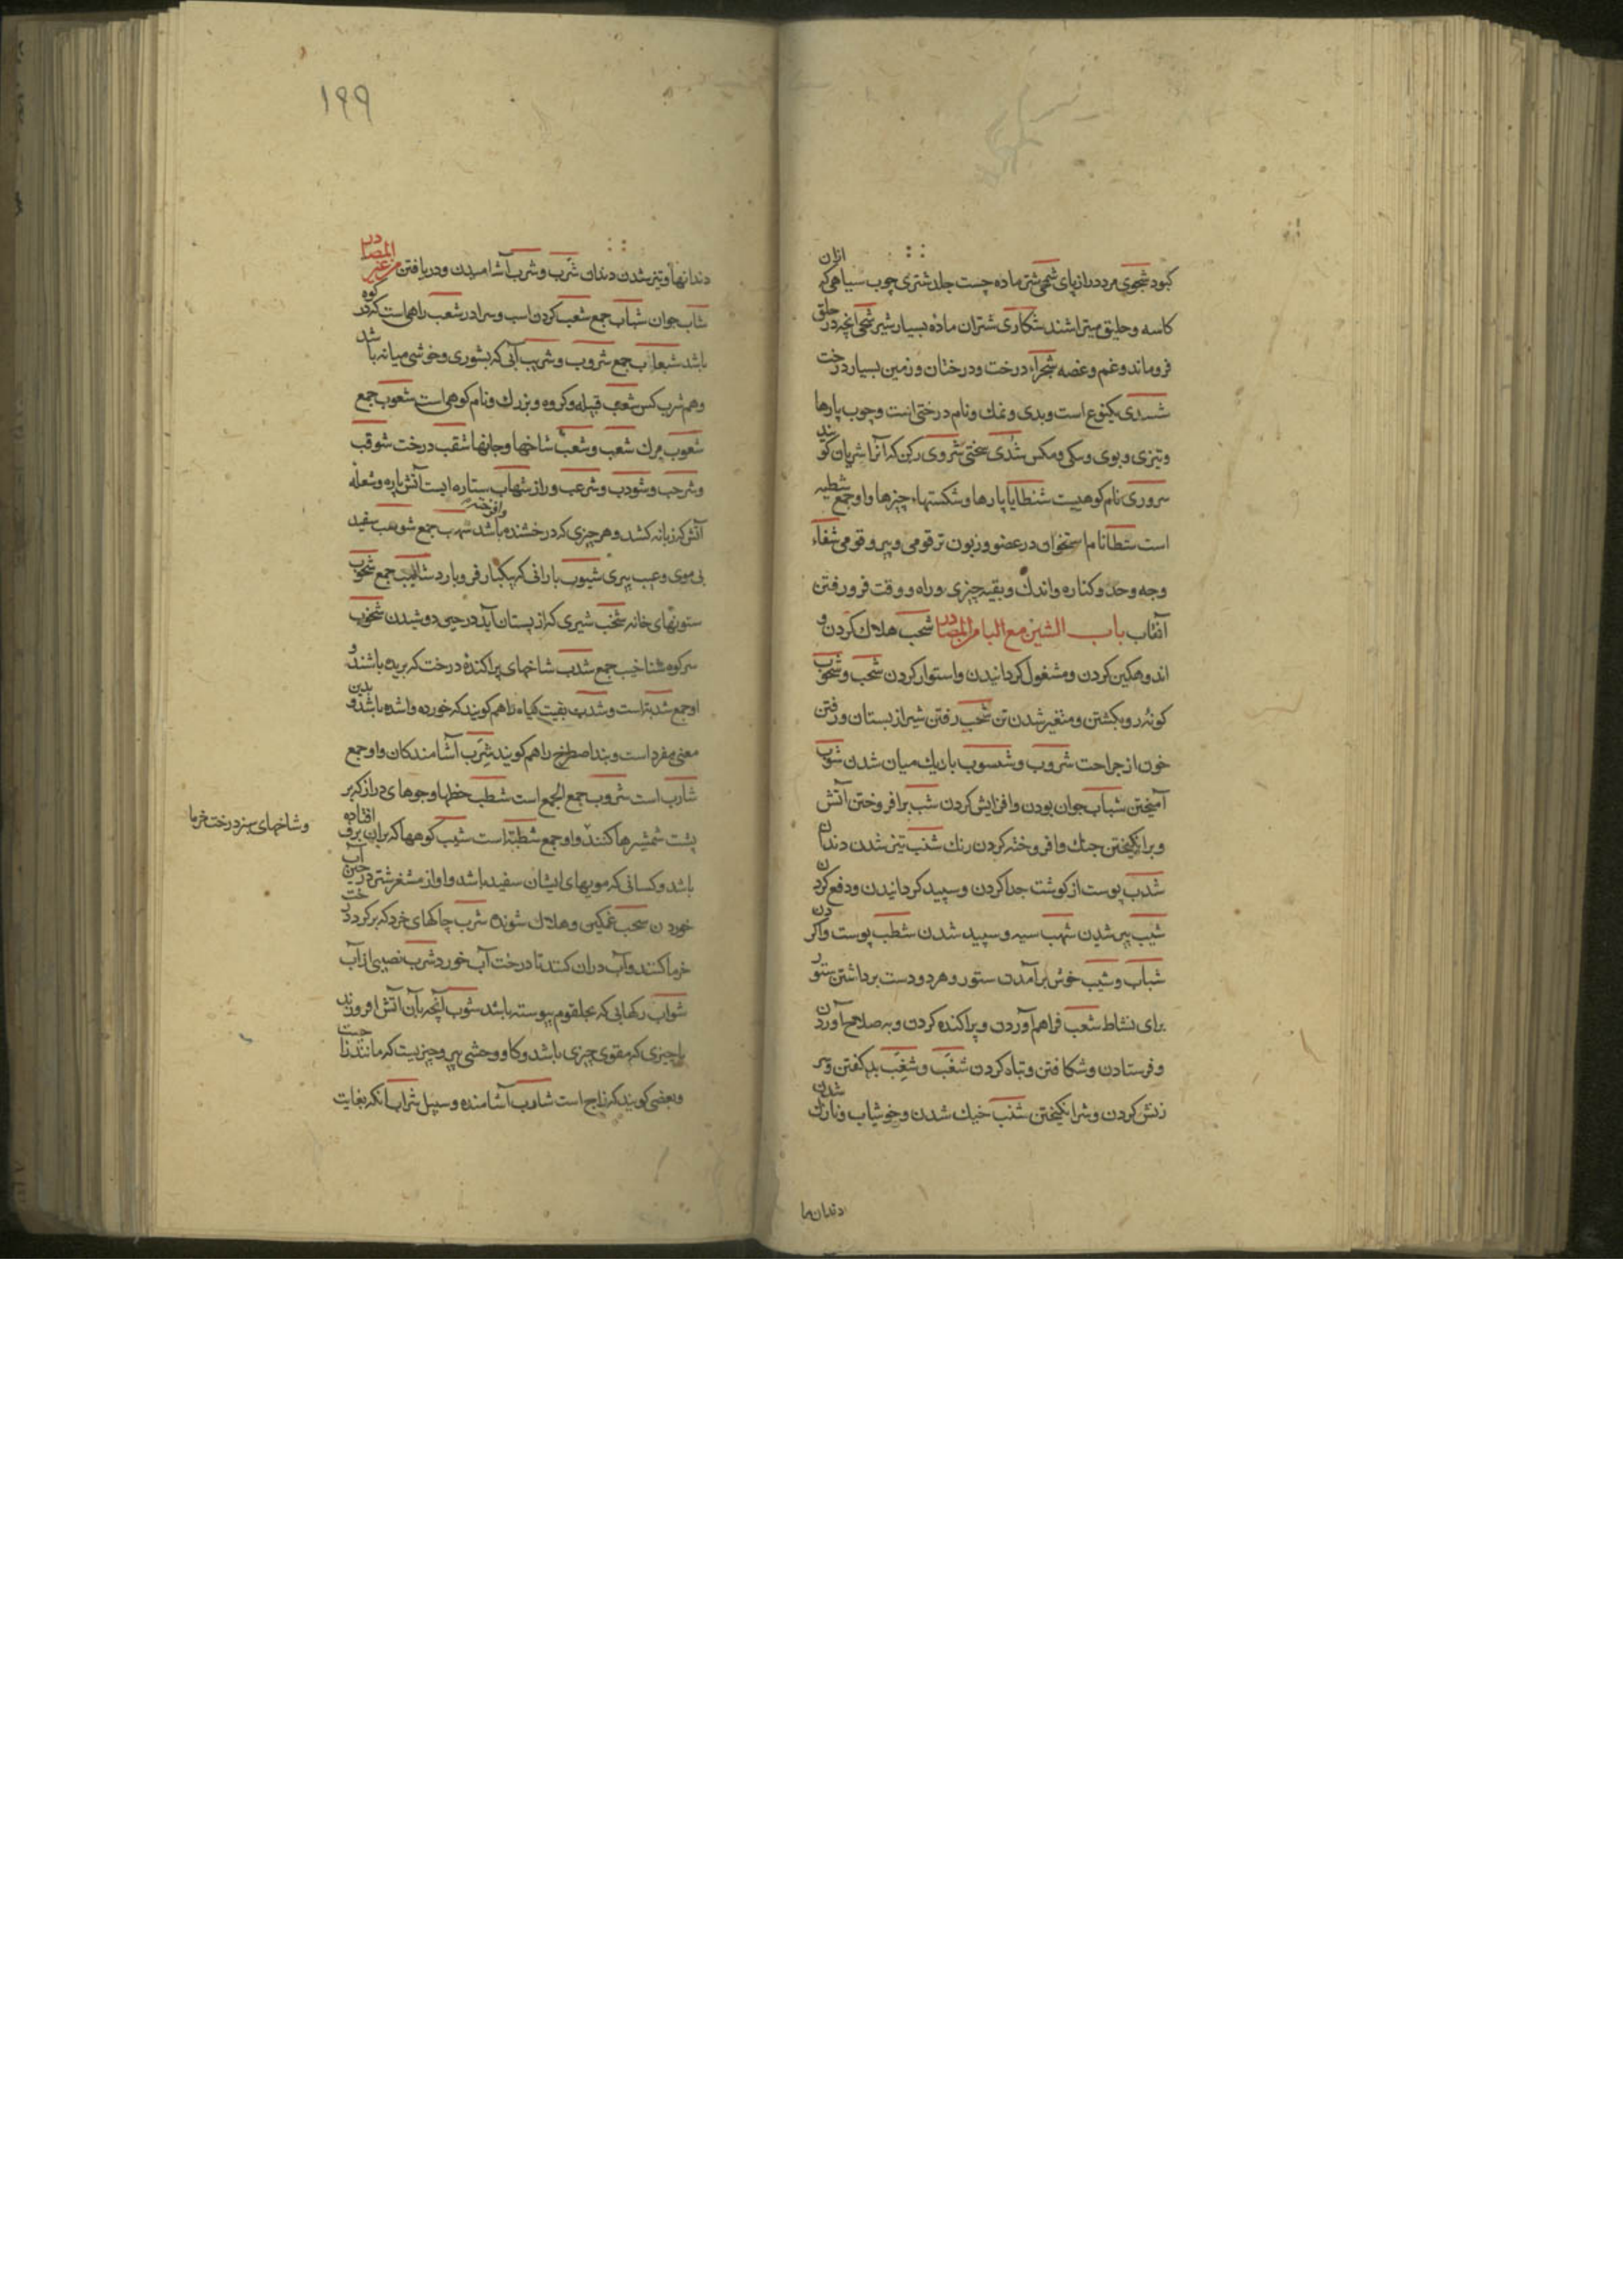 کبود شجوی مرد دراز پای شمجی شتر ماده چست جلد شتری چوب سیاهی که ازان
کاسه و حلیق میتراشند شکاری شتران مادۀ بسیار شیر شجی انچه در حلق
فروماند و غم و غصه شجراء درخت و درختان و زمین بسیار درخت
یکنوع است و بدی و نمك و نام درختی است و چوب پارها
و تیزی و بوی و سکی و مکس شذی سختی شروی رکن که آنرا شریان کویند
سروری نام کوهیست شنطایا پارها و شکستهاء چیزها و او جمع شطیه
است شظا نام استخوان در عضو و زبون تر قومی و پیرو قومی شفاء
وجه وحد و کناره و اندك و بقیه چیزی و راه و وقت فرو رفتن
آفتاب باب الشین مع البا من المصادر شجب هلاك کردن و
اندوهکین کردن و مشغول کردانیدن و استوار کردن شحب و شحوب
کونه رو بکشتن و متغیر شدن تن شخب رفتن شیر از پستان و رفتن
خون از جراحت شروب و شسوب باریك میان شدن شوب
آمیختن شباب جوان بودن و افزایش کردن شب برافروختن آتش
و برانکیختن جنك و افروخته کردن رنك شنب تیز شدن دندان
شذب پوست از کوشت جدا کردن و سپید کردانیدن و دفع کردن
شیب پیر شدن شهب سیه و سپید شدن شطب پوست واکردن
شباب و شیب خوش برآمدن ستور و هر دو دست برداشتن ستور
برای نشاط شعب فراهم آوردن و پراکنده کردن و به صلاح آوردن
و فرستادن و شکافتن و تباه کردن شغب و شغب بد کفتن و سر
زنش کردن و شر انکیختن شنب خنك شدن و خوشاب و نازك شدن
دندانها
۱۹۹
دندانها و تیز شدن دندان شرب و شرب آشامیدن و دریافتن من غیر المصادر
شاب جوان شباب جمع شعب کردن اسب و سرا در شعب راهی است که در کوه
باشد شعاب جمع شروب و شریب آبی که بشوری و خوشی میانه باشد
و هم شرب کس شعب قبیله و کروه و بزرك و نام کوهی است شعوب جمع
شعوب مرك شعب و شعب شاخها و جانها شقب درخت شوقب
و شرجب و شوذب و شرعب دراز شهاب ستاره ایست آتش پاره و شعله
آتش که زبانه کشد و هر چیزی که درخشنده و افروخته باشد شهب جمع شوهب سفید
بی موی و عیب پیری شیوب بارانی که یکبار فرو بارد شالیب جمع شخوب
ستونهای خانه شخب شیری که از پستان آید در حین دوشیدن شخوب
سر کوه شناخیب جمع شذب شاخهای پراکندۀ درخت که بریده باشند و
او جمع شذبة است و شذب بقیت کیاه را هم کویند که خورده و اشده باشد و بدین
معنی مفرد است و بند اصطرخ را هم کویند شرب آشامندکان و او جمع
شارب است شروب جمع الجمع است شطب خطها و جوهای دراز که بر
پشت شمشیرها کنند و او جمع شطبة است شیب کوهها که بران برف افتاده
و شاخهای سبز درخت خرما
باشد و کسانی که مویهای ایشان سفید باشد و اواز مشفر شتر در حین آب
خوردن شجب غمکین و هلاك شونده شرب چاکهای خرد که بر کرد درخت
خرما کنند و آب دران کنند تا درخت آب خورد شرب نصیبی از آب
شواب رکهایی که بحلقوم پیوسته باشد شبوب آنچه بآن آتش افروزند
یا چیزی که مقوی چیزی باشد و کاو وحشی پیر و چیزیست که مانند زاجست
و بعضی کویند که زاج است شارب آشامنده و سبیل شراب انکه بغایت